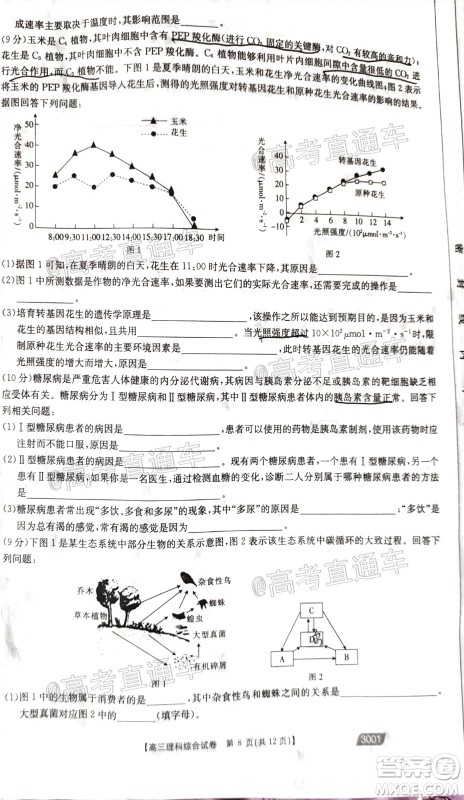 成速率主要取决于温度时，其影响范围是
(9分)玉米是C₄植物，其叶肉细胞中含有PEP羧化酶(进行CO₂固定的关键酶，对CO₂有较高的亲和力)；
花生是C₃植物，其叶肉细胞中不含PEP羧化酶。C₄植物能够利用叶片内细胞间隙中含量很低的CO₂进
行光合作用，而C₃植物不能。下图1是夏季晴朗的白天，玉米和花生净光合速率的变化曲线图，图2表示
将玉米的PEP羧化酶基因导入花生后，测得的光照强度对转基因花生和原种花生光合速率的影响的结果。
据图回答下列问题：
净光合速率/(μmol·m⁻²·s⁻¹)
50
40
30
20
10
0
玉米
花生
8:00 9:30 11:00 12:30 14:00 15:30 17:00 18:30 时间
图1
光合速率/(μmol·m⁻²·s⁻¹)
40
30
20
10
0
-10
转基因花生
原种花生
2 4 6 8 10 12 14
光照强度/(10²μmol·m⁻²·s⁻¹)
图2
(1)据图1可知，在夏季晴朗的白天，花生在11:00时光合速率下降，其原因是
(2)图1中所测数据是作物的净光合速率，如果要测出它们的实际光合速率，还需要完成的操作是
(3)培育转基因花生的遗传学原理是，该操作之所以能达到预期目的，是因为玉米和花
生的基因结构相似，且共用。当光照强度超过10×10²μmol·m⁻²·s⁻¹时，限
制原种花生光合速率的主要环境因素是，此时转基因花生的光合速率仍能随着
光照强度的增大而增大，原因是
(10分)糖尿病是严重危害人体健康的内分泌代谢病，其病因与胰岛素分泌不足或胰岛素的靶细胞缺乏相
应受体有关。糖尿病分为Ⅰ型糖尿病和Ⅱ型糖尿病，其中Ⅱ型糖尿病患者体内的胰岛素含量正常。回答下
列问题：
(1)Ⅰ型糖尿病患者的病因是，患者可以使用的药物是胰岛素制剂，使用该药物时应
注射而不能口服，原因是
(2)Ⅱ型糖尿病患者的病因是。现有甲、乙两个糖尿病患者，分别患Ⅰ型糖尿病和Ⅱ
型糖尿病，如果你是一名医生，通过检测甲、乙体内的生理变化，诊断出二人分别属于哪种糖尿病的
方法是
(3)糖尿病患者常出现“多饮、多食和多尿”的现象，其中“多尿”的原因是；“多饮”是
因为糖尿病患者常有渴的感觉，常有渴的感觉是因为
(9分)下图1是某生态系统中部分生物的关系示意图，图2表示该生态系统中碳循环的大致过程。回答下
列问题：
乔木
草本植物
杂食性鸟
蜘蛛
蝗虫
大型真菌
有机碎屑
图1
C
D
A
B
图2
(1)图1中的生物属于消费者的是，其中杂食性鸟和蜘蛛之间的关系是。
大型真菌对应图2中的(填字母)。
【高三理科综合试卷 第8页(共12页)】
3001
@高考直通车
@高考直通车
@高考直通车
@高考直通车
答案圈
MXQE.COM